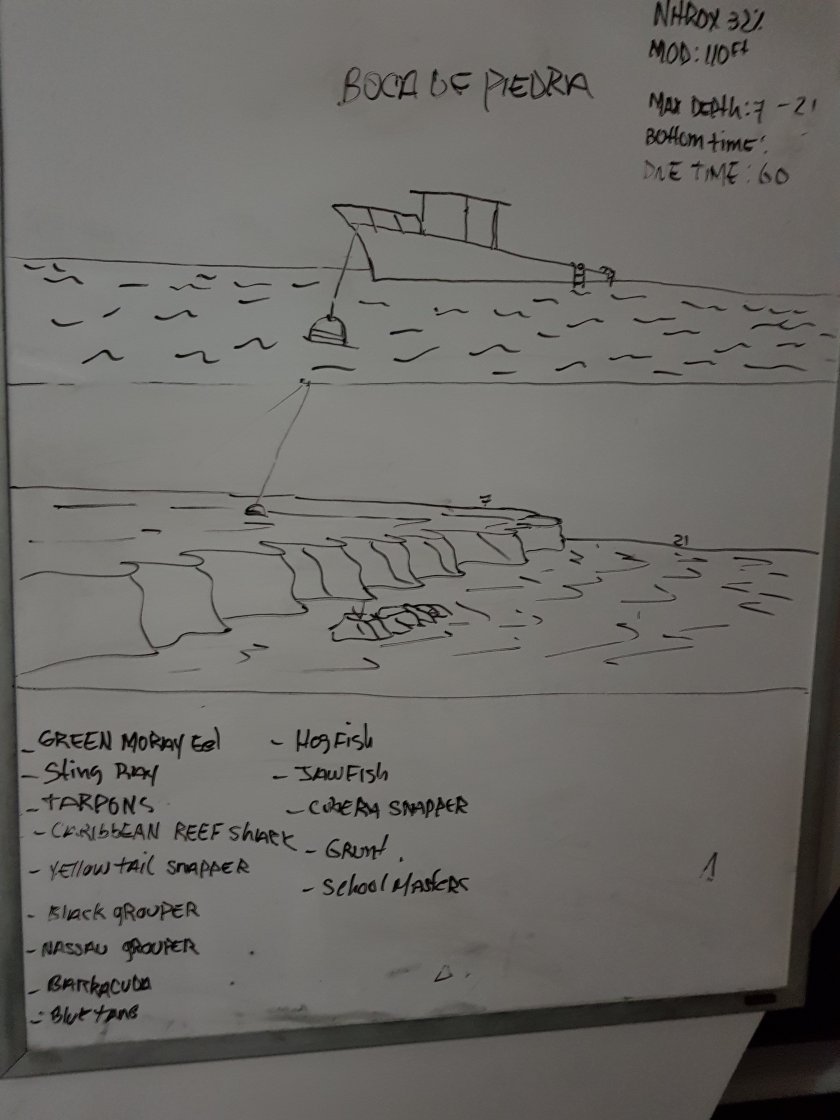 NITROX 32%
MOD: 110Ft
BOCA DE PIEDRA
MAX DEPTH: 7 - 21
BOttom time:
DIVE TIME: 60
7
21
- GREEN MORAY Eel
- Sting RAY
- TARPONS
- CARIbbEAN REEF SHARK
- YEllow tail SNAPPER
- Black gROUPER
- NASSAU gROUPER
- BARRACUDA
- Blue tang
- HogFish
- JAWFish
- CUBERA SNAPPER
- GRUNt
- School MASTERS
1